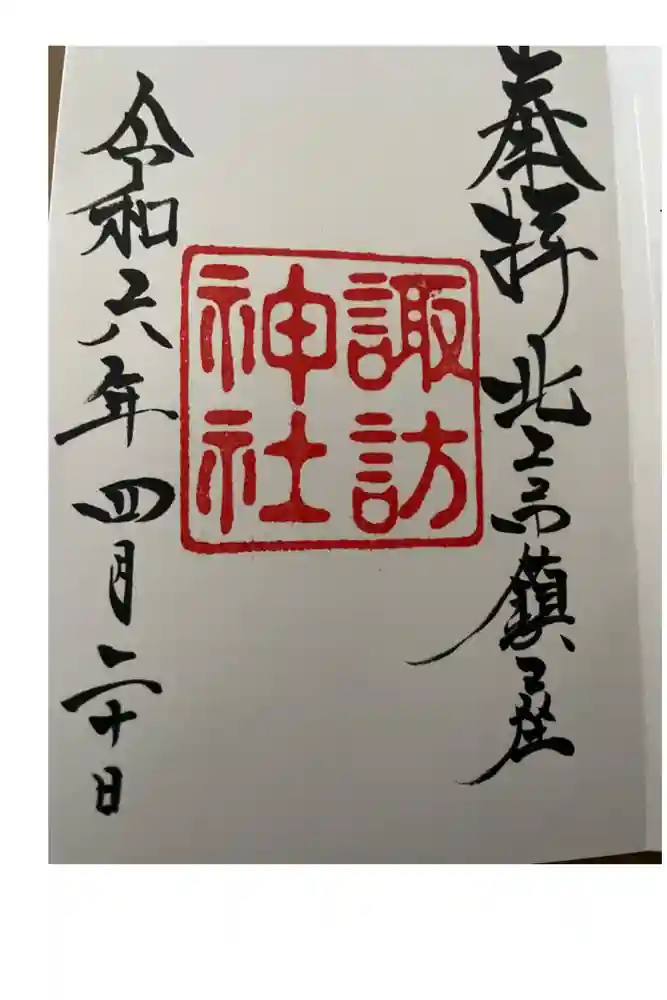 奉拝 北上市鎮座
諏訪
神社
令和六年四月二十日